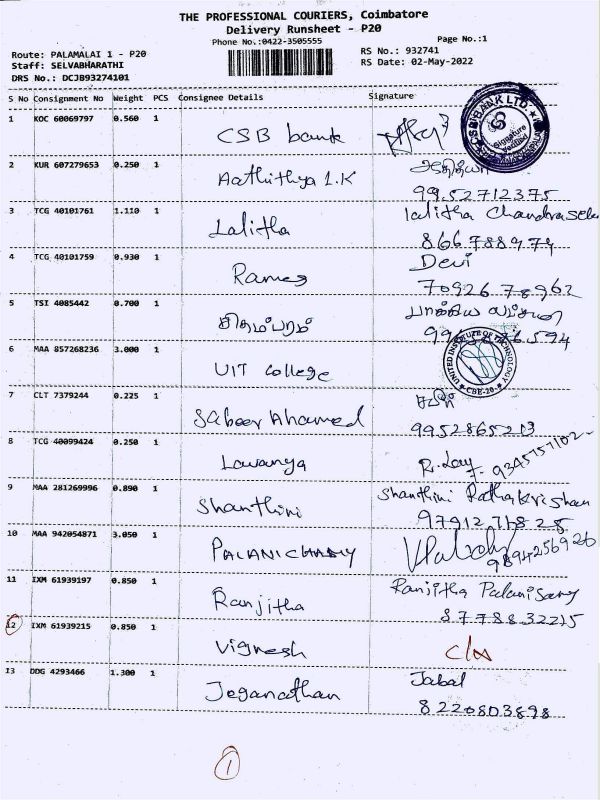 THE PROFESSIONAL COURIERS, Coimbatore
Delivery Runsheet - P20
Phone No.:0422-3505555
Page No.:1
Route: PALAMALAI 1 - P20
RS No.: 932741
Staff: SELVABHARATHI
RS Date: 02-May-2022
DRS No.: DCJB93274101
S No Consignment No Weight PCS Consignee Details Signature
1 KOC 60069797 0.560 1
CSB bank
CSB BANK LTD.
Signature Verified
2 KUR 607279653 0.250 1
Aathithya L.K
9952712375
3 TCG 40101761 1.110 1
Lalitha
lalitha Chandrasek
8667788979
4 TCG 40101759 0.930 1
Devi
Rames
7092678962
5 TSI 4085442 0.700 1
சிதம்பரம்
6 MAA 857268236 3.000 1
UIT College
UNITED INSTITUTE OF TECHNOLOGY
CBE-20
7 CLT 7379244 0.225 1
Sabeer Ahamed
9952865213
8 TCG 40099424 0.250 1
Lawanya
9 MAA 281269996 0.890 1
Shanthini
Shanthini Rathakrishan
10 MAA 942054871 3.050 1
PALANICHAMY
9894256926
11 IXM 61939197 0.850 1
Ranjitha
Ranjitha Palanisamy
8778832215
12 IXM 61939215 0.850 1
Vignesh
13 DDG 4293466 1.300 1
Jeganathan
Jabal
8220803898
1